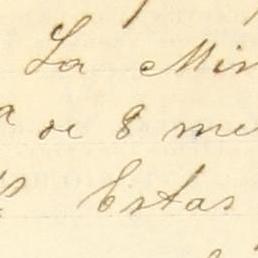 La Min
a de 8 me
Estas